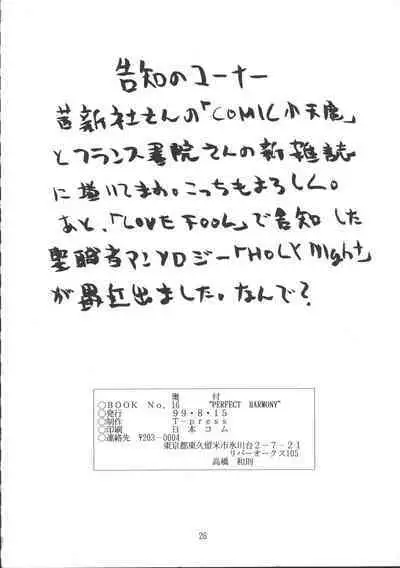 告知のコーナー
茜新社さんの「COMIC小天鹿」
とフランス書院さんの新雑誌
に描いてまわ。こっちもよろしく。
あと、「LOVE FOOL」で告知した
聖職者アンソロジー「HOLY Night」
が最近出ました。なんで？
奥付
○BOOK No. 16 "PERFECT HARMONY"
○発行 99・8・15
○制作 T-press
○印刷 日本コム
○連絡先 〒203-0004
東京都東久留米市氷川台2-7-21
リバーオークス105
高橋 和則
26